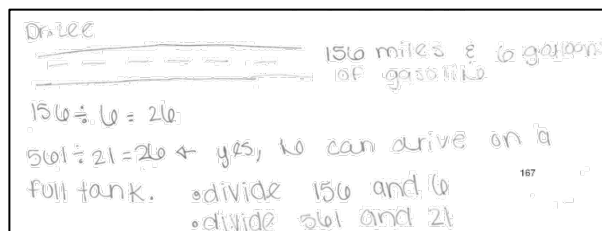 Dr. Lee
156 miles & 6 gallons
of gasoline
156 ÷ 6 = 26
561 ÷ 21 = 26 ← yes, he can drive on a
full tank. • divide 156 and 6
167
• divide 561 and 21